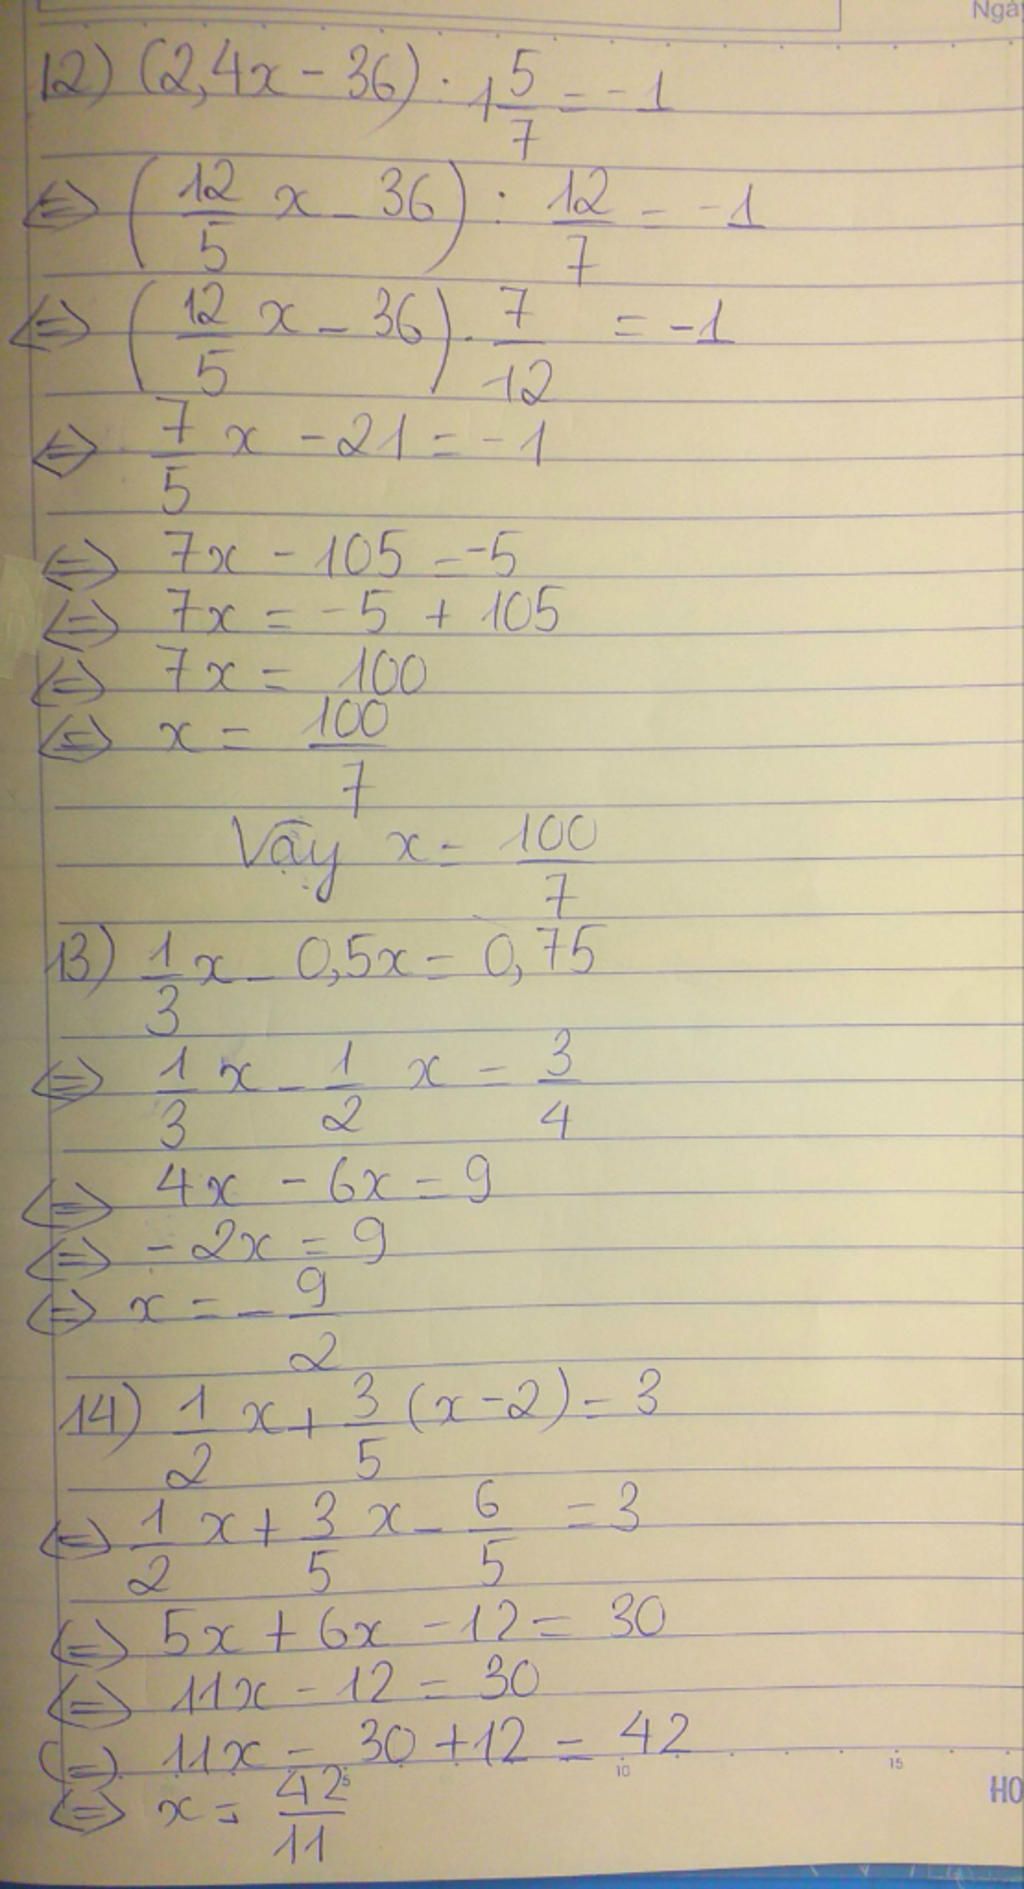 Ngày
12) (2,4x - 36) : 1 5/7 = -1
⇔ (12/5 x - 36) : 12/7 = -1
⇔ (12/5 x - 36) . 7/12 = -1
⇔ 7/5 x - 21 = -1
⇔ 7x - 105 = -5
⇔ 7x = -5 + 105
⇔ 7x = 100
⇔ x = 100/7
Vậy x = 100/7
13) 1/3 x - 0,5x = 0,75
⇔ 1/3 x - 1/2 x = 3/4
⇔ 4x - 6x = 9
⇔ -2x = 9
⇔ x = - 9/2
14) 1/2 x + 3/5 (x - 2) = 3
⇔ 1/2 x + 3/5 x - 6/5 = 3
⇔ 5x + 6x - 12 = 30
⇔ 11x - 12 = 30
⇔ 11x = 30 + 12 = 42
⇔ x = 42/11
5 10 15
HO